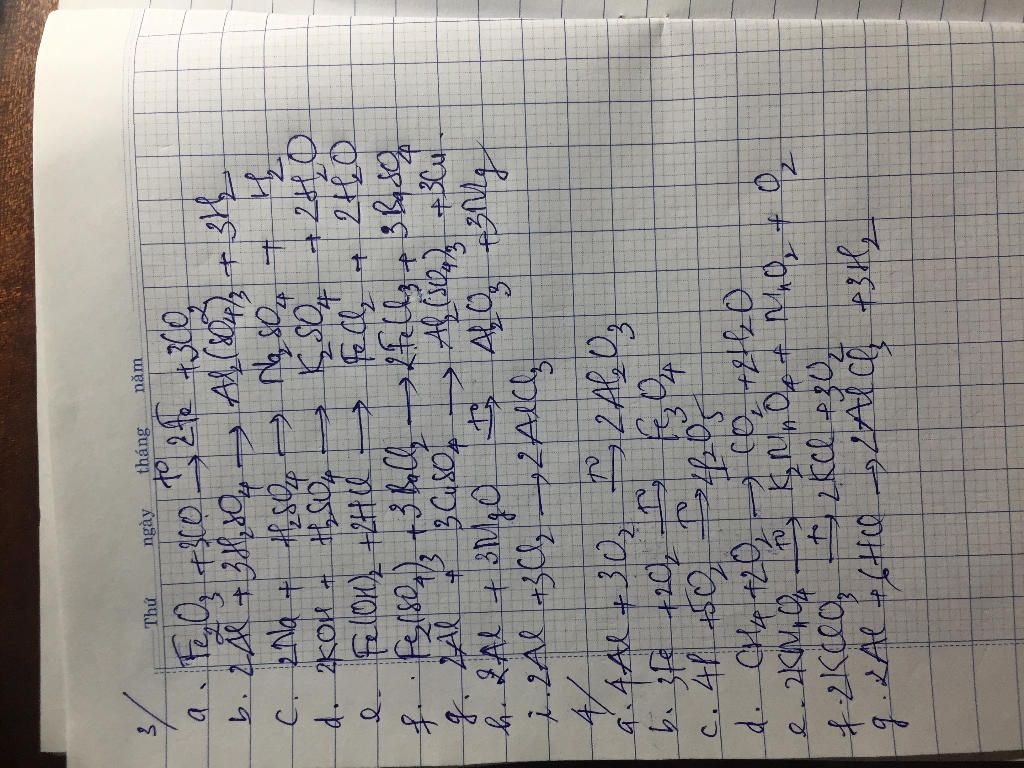 Thứ ngày tháng năm
3/
a. Fe2O3 + 3CO →T° 2Fe + 3CO2
b. 2Al + 3H2SO4 → Al2(SO4)3 + 3H2
c. 2Na + H2SO4 → Na2SO4 + H2
d. 2KOH + H2SO4 → K2SO4 + 2H2O
e. Fe(OH)2 + 2HCl → FeCl2 + 2H2O
f. Fe2(SO4)3 + 3BaCl2 → 2FeCl3 + 3BaSO4
g. 2Al + 3CuSO4 → Al2(SO4)3 + 3Cu.
h. 2Al + 3MgO →T° Al2O3 + 3Mg
i. 2Al + 3Cl2 → 2AlCl3
4/
a. 4Al + 3O2 →T° 2Al2O3
b. 3Fe + 2O2 →T° Fe3O4
c. 4P + 5O2 →T° 2P2O5
d. CH4 + 2O2 → CO2 + 2H2O
e. 2KMnO4 →T° K2MnO4 + MnO2 + O2
f. 2KClO3 →T° 2KCl + 3O2
g. 2Al + 6HCl → 2AlCl3 + 3H2